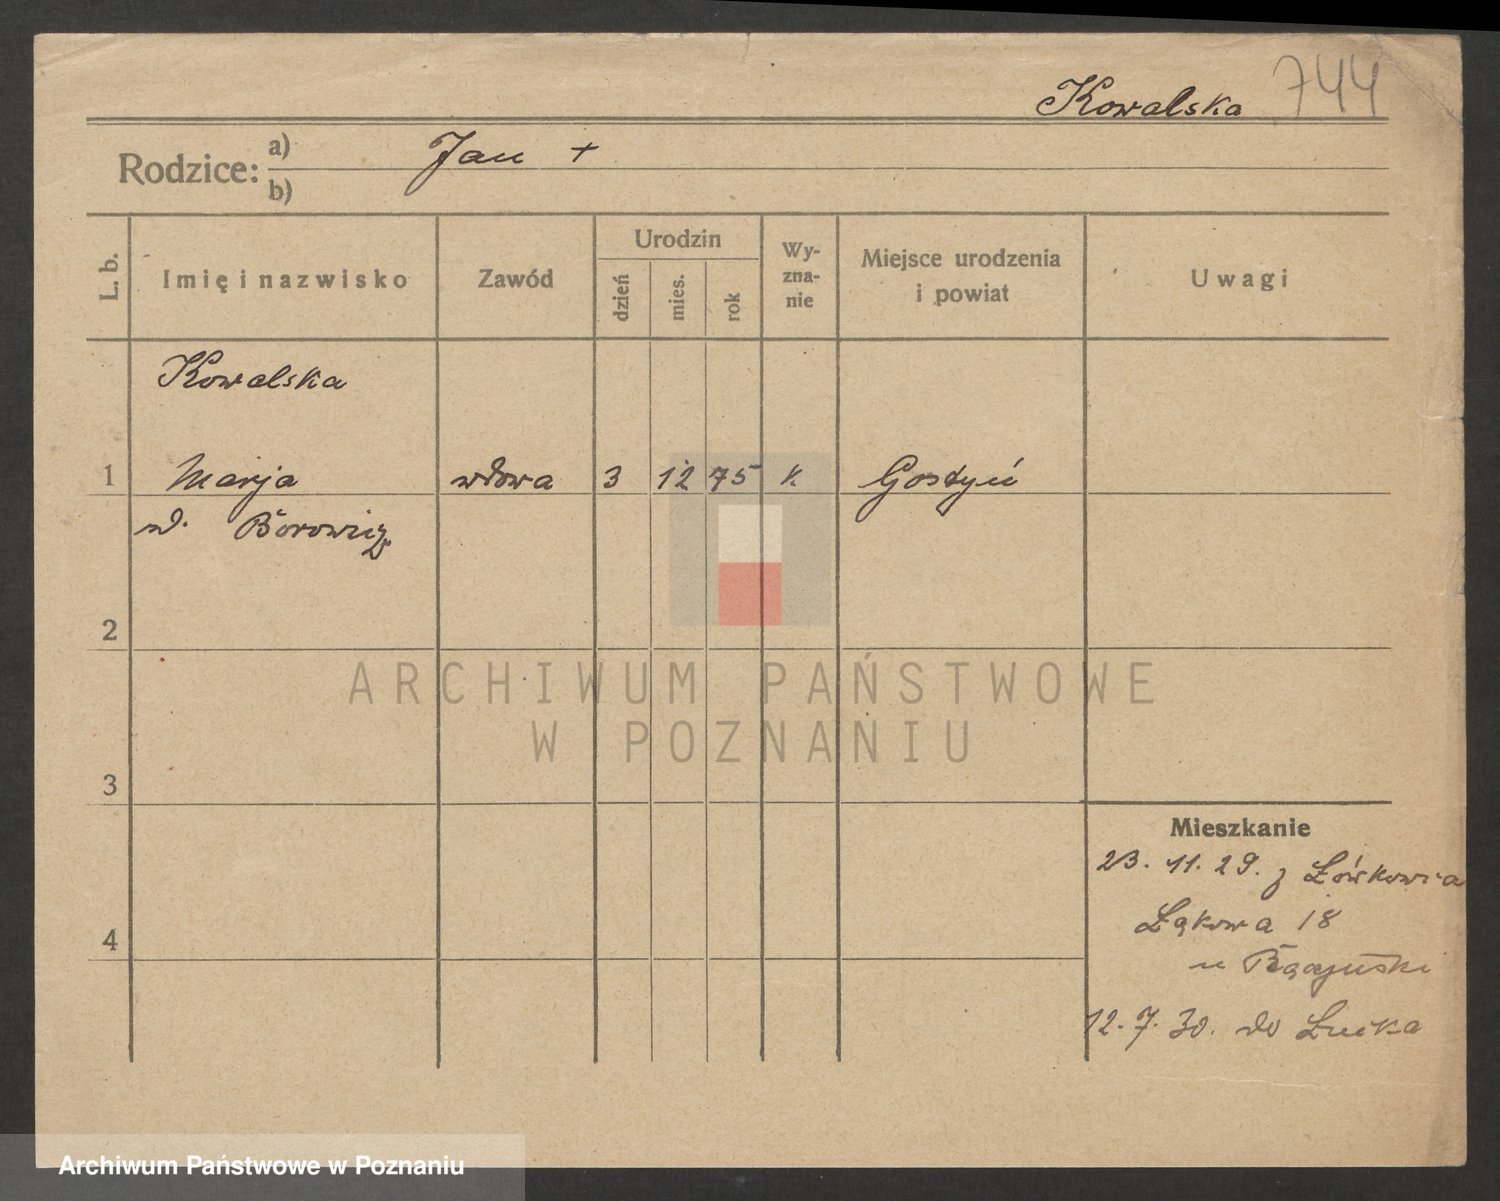 Kowalska 744
Rodzice: a) Jan +
b)
L. b.
Imię i nazwisko
Zawód
Urodzin
dzień
mies.
rok
Wy-
zna-
nie
Miejsce urodzenia
i powiat
Uwagi
Kowalska
1 Marja wdowa 3 12 75 k. Gostyń
Borowicz
2
3
4
Mieszkanie
23. 11. 29. z
Łąkowa 18
u
12. 7. 30. do
ARCHIWUM PAŃSTWOWE
W POZNANIU
Archiwum Państwowe w Poznaniu